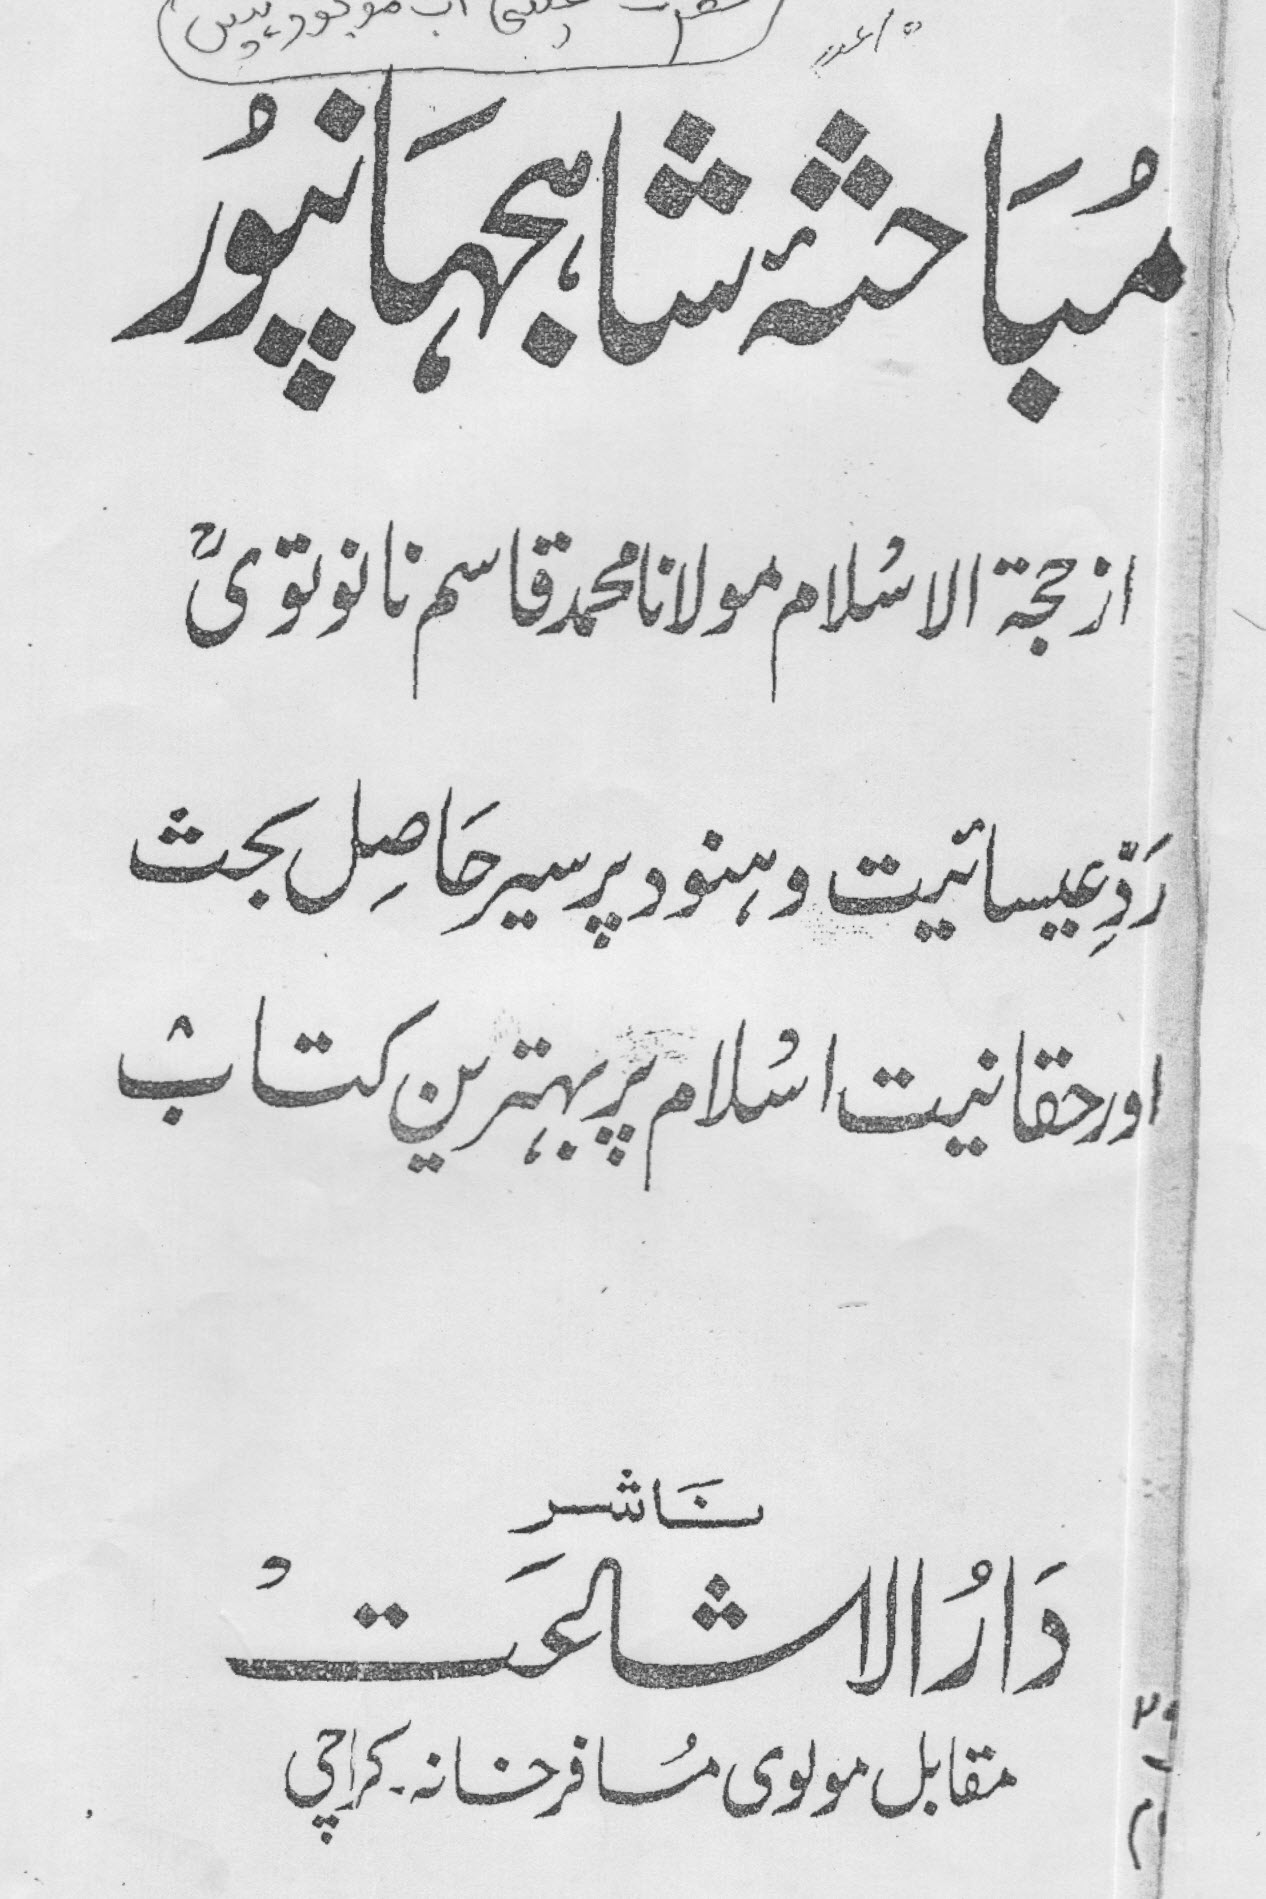 اب موجود ہیں
مُبَاحثۂ شاہجہَانپُور
از حجۃ الاسُلام مولانا محمد قاسم نانوتویؒ
رَدِّ عیسائیت و ہنود پر سیر حَاصِل بحث
اور حقانیت اسُلام پر بہترین کتاب
نَاشر
دَارُ الاشاعَتْ
مقابل مولوی مُسافر خانہ۔ کراچی